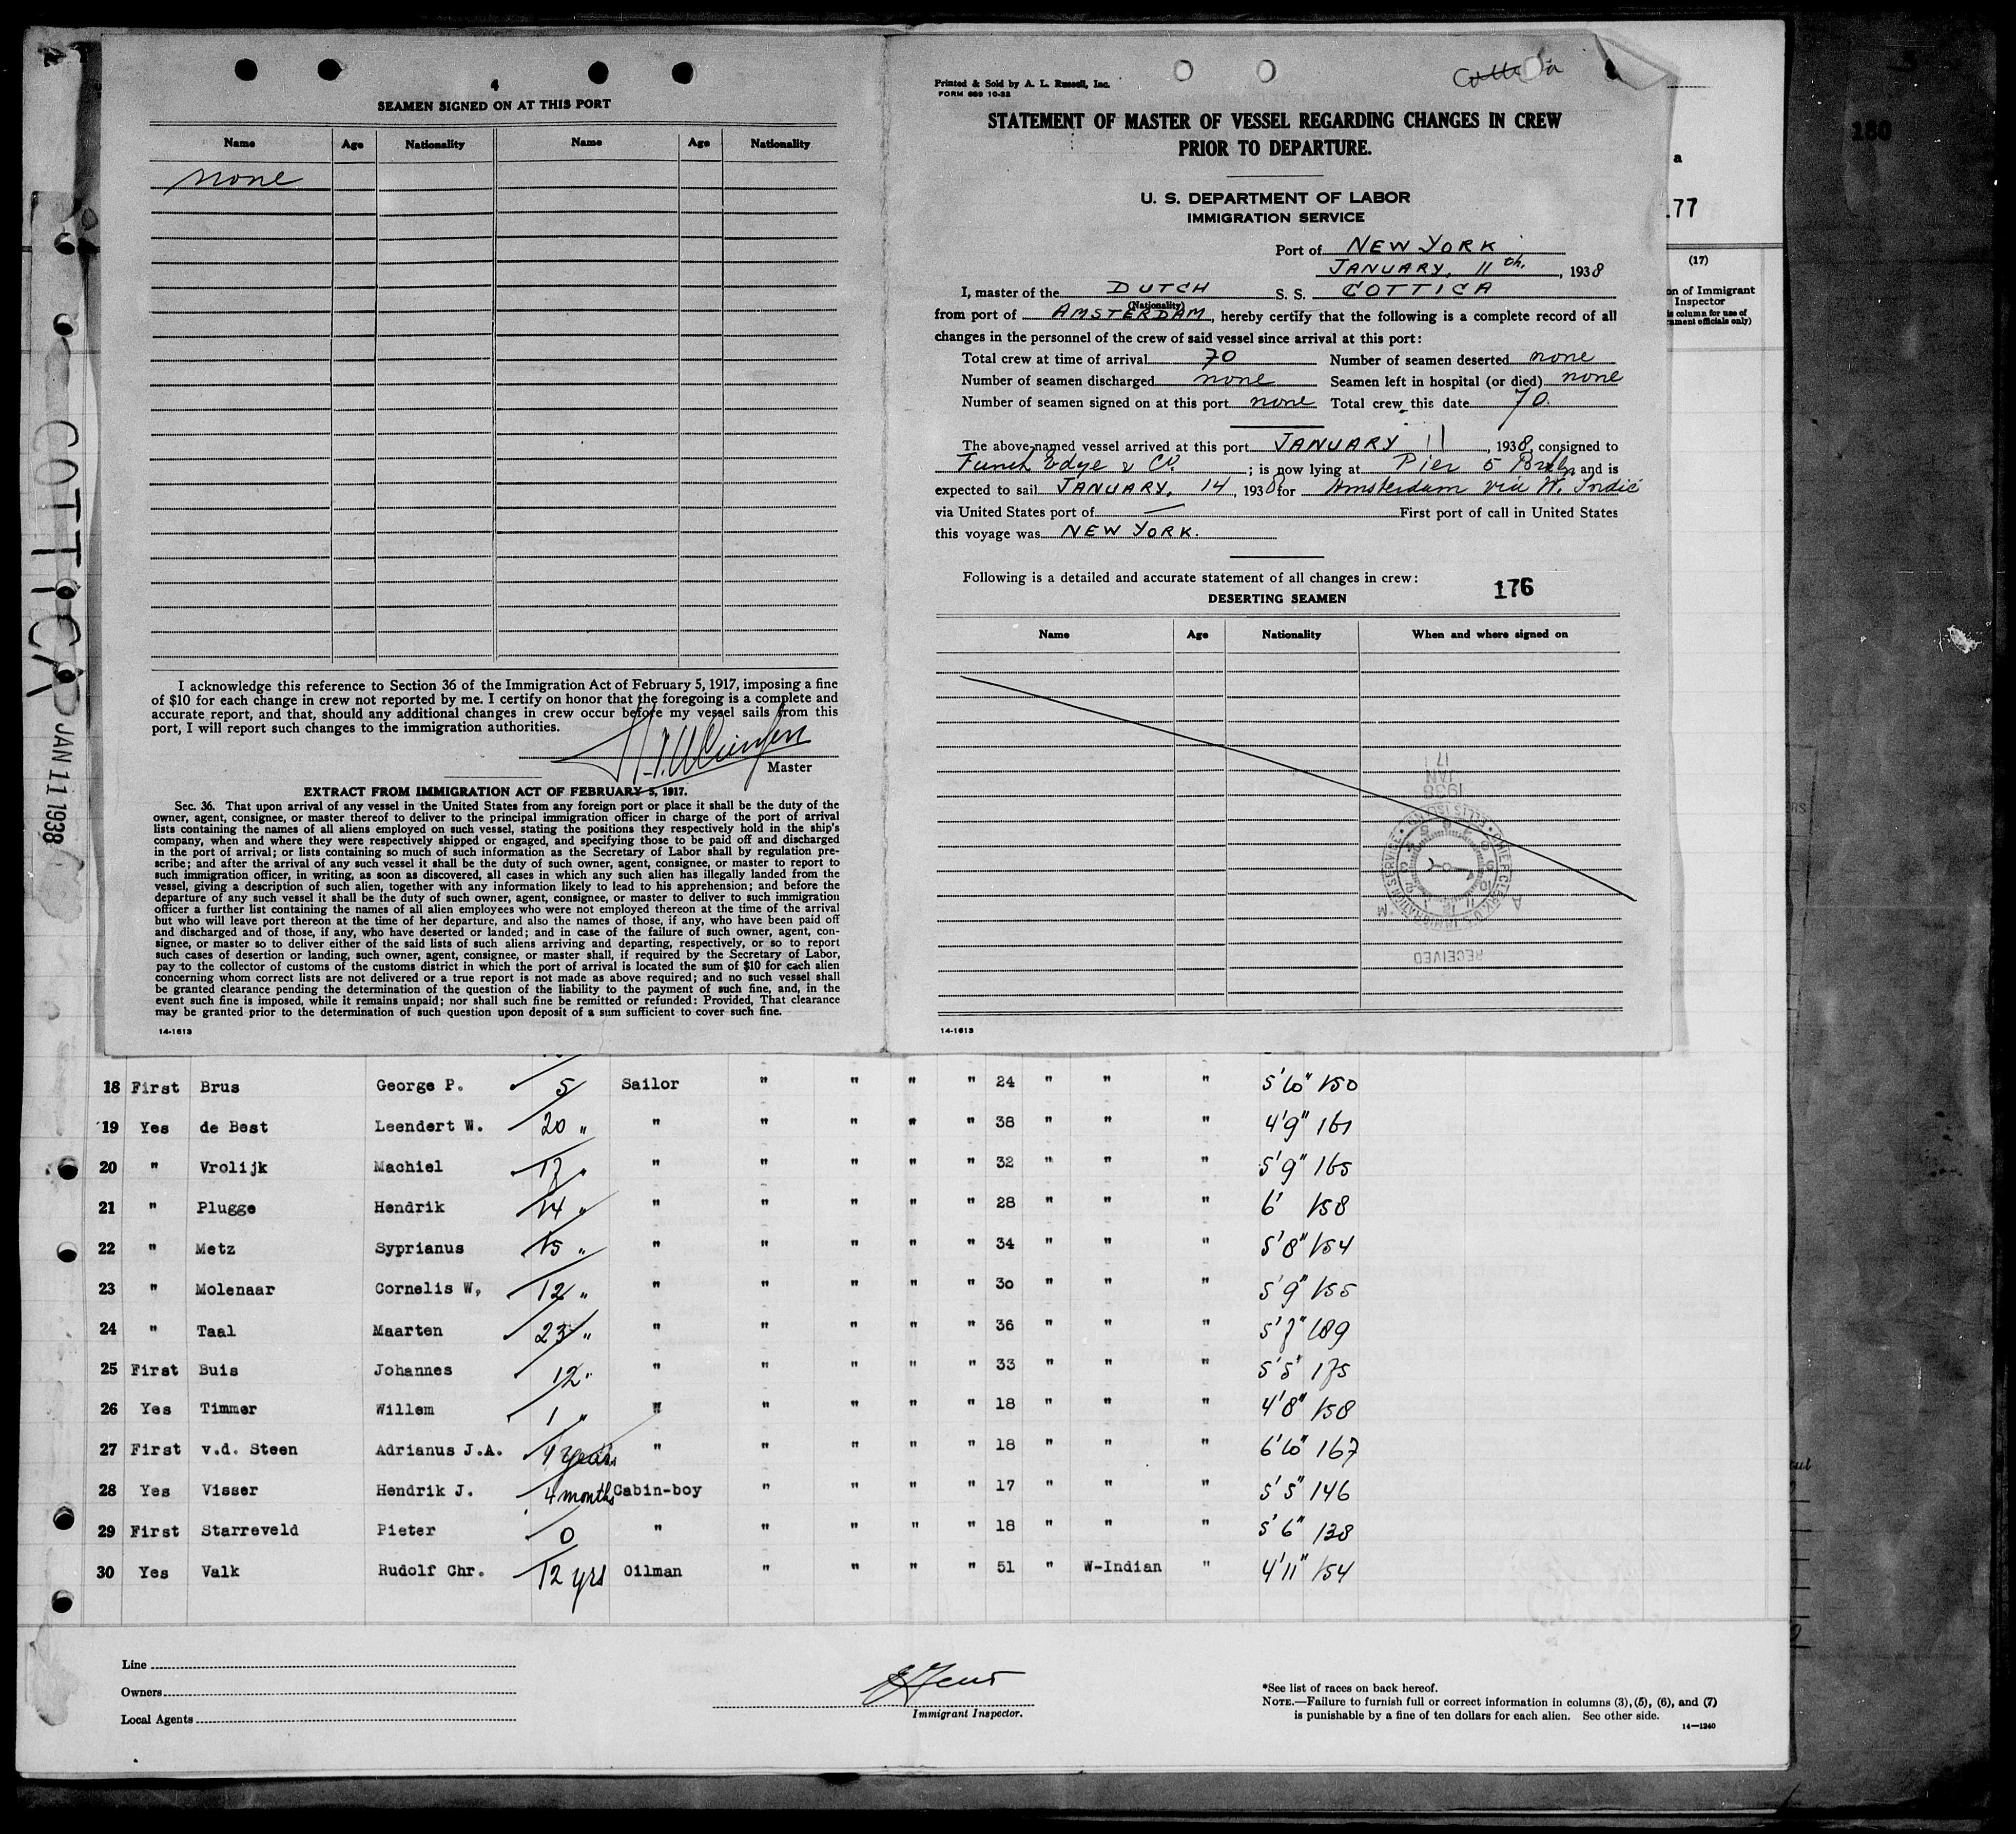 4
SEAMEN SIGNED ON AT THIS PORT
Name Age Nationality Name Age Nationality
none
I acknowledge this reference to Section 36 of the Immigration Act of February 5, 1917, imposing a fine
of $10 for each change in crew not reported by me. I certify on honor that the foregoing is a complete and
accurate report, and that, should any additional changes in crew occur before my vessel sails from this
port, I will report such changes to the immigration authorities.
Master
EXTRACT FROM IMMIGRATION ACT OF FEBRUARY 5, 1917.
Sec. 36. That upon arrival of any vessel in the United States from any foreign port or place it shall be the duty of the
owner, agent, consignee, or master thereof to deliver to the principal immigration officer in charge of the port of arrival
lists containing the names of all aliens employed on such vessel, stating the positions they respectively hold in the ship's
company, when and where they were respectively shipped or engaged, and specifying those to be paid off and discharged
in the port of arrival; or lists containing so much of such information as the Secretary of Labor shall by regulation pre-
scribe; and after the arrival of any such vessel it shall be the duty of such owner, agent, consignee, or master to report to
such immigration officer, in writing, as soon as discovered, all cases in which any such alien has illegally landed from the
vessel, giving a description of such alien, together with any information likely to lead to his apprehension; and before the
departure of any such vessel it shall be the duty of such owner, agent, consignee, or master to deliver to such immigration
officer a further list containing the names of all alien employees who were not employed thereon at the time of the arrival
but who will leave port thereon at the time of her departure, and also the names of those, if any, who have been paid off
and discharged and of those, if any, who have deserted or landed; and in case of the failure of such owner, agent, con-
signee, or master so to deliver either of the said lists of such aliens arriving and departing, respectively, or so to report
such cases of desertion or landing, such owner, agent, consignee, or master shall, if required by the Secretary of Labor,
pay to the collector of customs of the customs district in which the port of arrival is located the sum of $10 for each alien
concerning whom correct lists are not delivered or a true report is not made as above required; and no such vessel shall
be granted clearance pending the determination of the question of the liability to the payment of such fine, and, in the
event such fine is imposed, while it remains unpaid; nor shall such fine be remitted or refunded: Provided, That clearance
may be granted prior to the determination of such question upon deposit of a sum sufficient to cover such fine.
14-1613
Printed & Sold by A. L. Russell, Inc.
FORM 689 10-32
Cottica
STATEMENT OF MASTER OF VESSEL REGARDING CHANGES IN CREW
PRIOR TO DEPARTURE.
U. S. DEPARTMENT OF LABOR
IMMIGRATION SERVICE
Port of NEW YORK
JANUARY, 11th, 1938
I, master of the DUTCH S. S. COTTICA
(Nationality)
from port of AMSTERDAM, hereby certify that the following is a complete record of all
changes in the personnel of the crew of said vessel since arrival at this port:
Total crew at time of arrival 70 Number of seamen deserted none
Number of seamen discharged none Seamen left in hospital (or died) none
Number of seamen signed on at this port none Total crew this date 70.
The above-named vessel arrived at this port JANUARY 11, 1938, consigned to
Funch Edye & Co. ; is now lying at Pier 5 Bkln and is
expected to sail JANUARY, 14, 1938 for Amsterdam via W. Indie
via United States port of — First port of call in United States
this voyage was NEW YORK.
Following is a detailed and accurate statement of all changes in crew:
DESERTING SEAMEN
176
Name Age Nationality When and where signed on
1938
JAN
17
CHIEF CLERK, U.S. IMMIGRATION SERVICE • ELLIS ISLAND •
A M
RECEIVED
14-1613
180
a
177
(17)
on of Immigrant
Inspector
is column for use of
rnment officials only)
COTTICA
JAN 11 1938
18 First Brus George P. 5 Sailor " " " " 24 " " " 5'10" 150
19 Yes de Best Leendert W. 20 " " " " " " 38 " " " 4'9" 161
20 " Vrolijk Machiel 17 " " " " " " 32 " " " 5'9" 165
21 " Plugge Hendrik 14 " " " " " " 28 " " " 6' 158
22 " Metz Syprianus 15 " " " " " " 34 " " " 5'8" 154
23 " Molenaar Cornelis W, 12 " " " " " " 30 " " " 5'9" 155
24 " Taal Maarten 23 " " " " " " 36 " " " 5'7" 189
25 First Buis Johannes 12 " " " " " " 33 " " " 5'5" 175
26 Yes Timmer Willem 1 " " " " " " 18 " " " 4'8" 158
27 First v.d. Steen Adrianus J.A. 4 years " " " " " 18 " " " 6'10" 167
28 Yes Visser Hendrik J. 4 months Cabin-boy " " " " 17 " " " 5'5" 146
29 First Starreveld Pieter 0 " " " " " 18 " " " 5'6" 138
30 Yes Valk Rudolf Chr. 12 yrs Oilman " " " " 51 " W-Indian " 4'11" 154
Line
Owners
Local Agents
Immigrant Inspector.
*See list of races on back hereof.
NOTE.—Failure to furnish full or correct information in columns (3), (5), (6), and (7)
is punishable by a fine of ten dollars for each alien. See other side.
14—1240